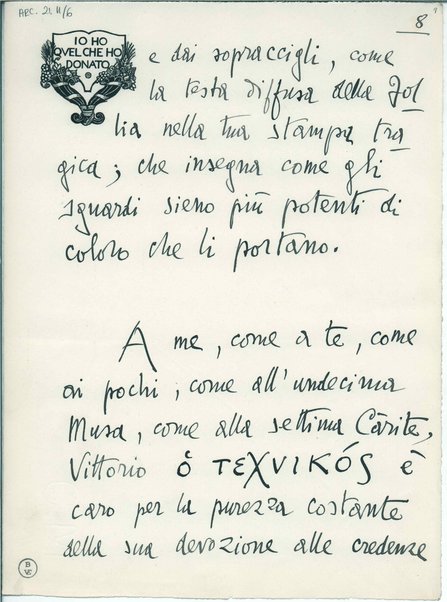 ARC. 21. II/6
8
IO HO
QVEL CHE HO
DONATO
e dai sopraccigli, come
la testa diffusa della Fol
lia nella tua stampa tra
gica; che insegna come gli
sguardi sieno più potenti di
coloro che li portano.
A me, come a te, come
ai pochi, come all'undecima
Musa, come alla settima Càrite,
Vittorio ὁ ΤΕΧΝΙΚΌΣ è
caro per la purezza costante
della sua devozione alle credenze